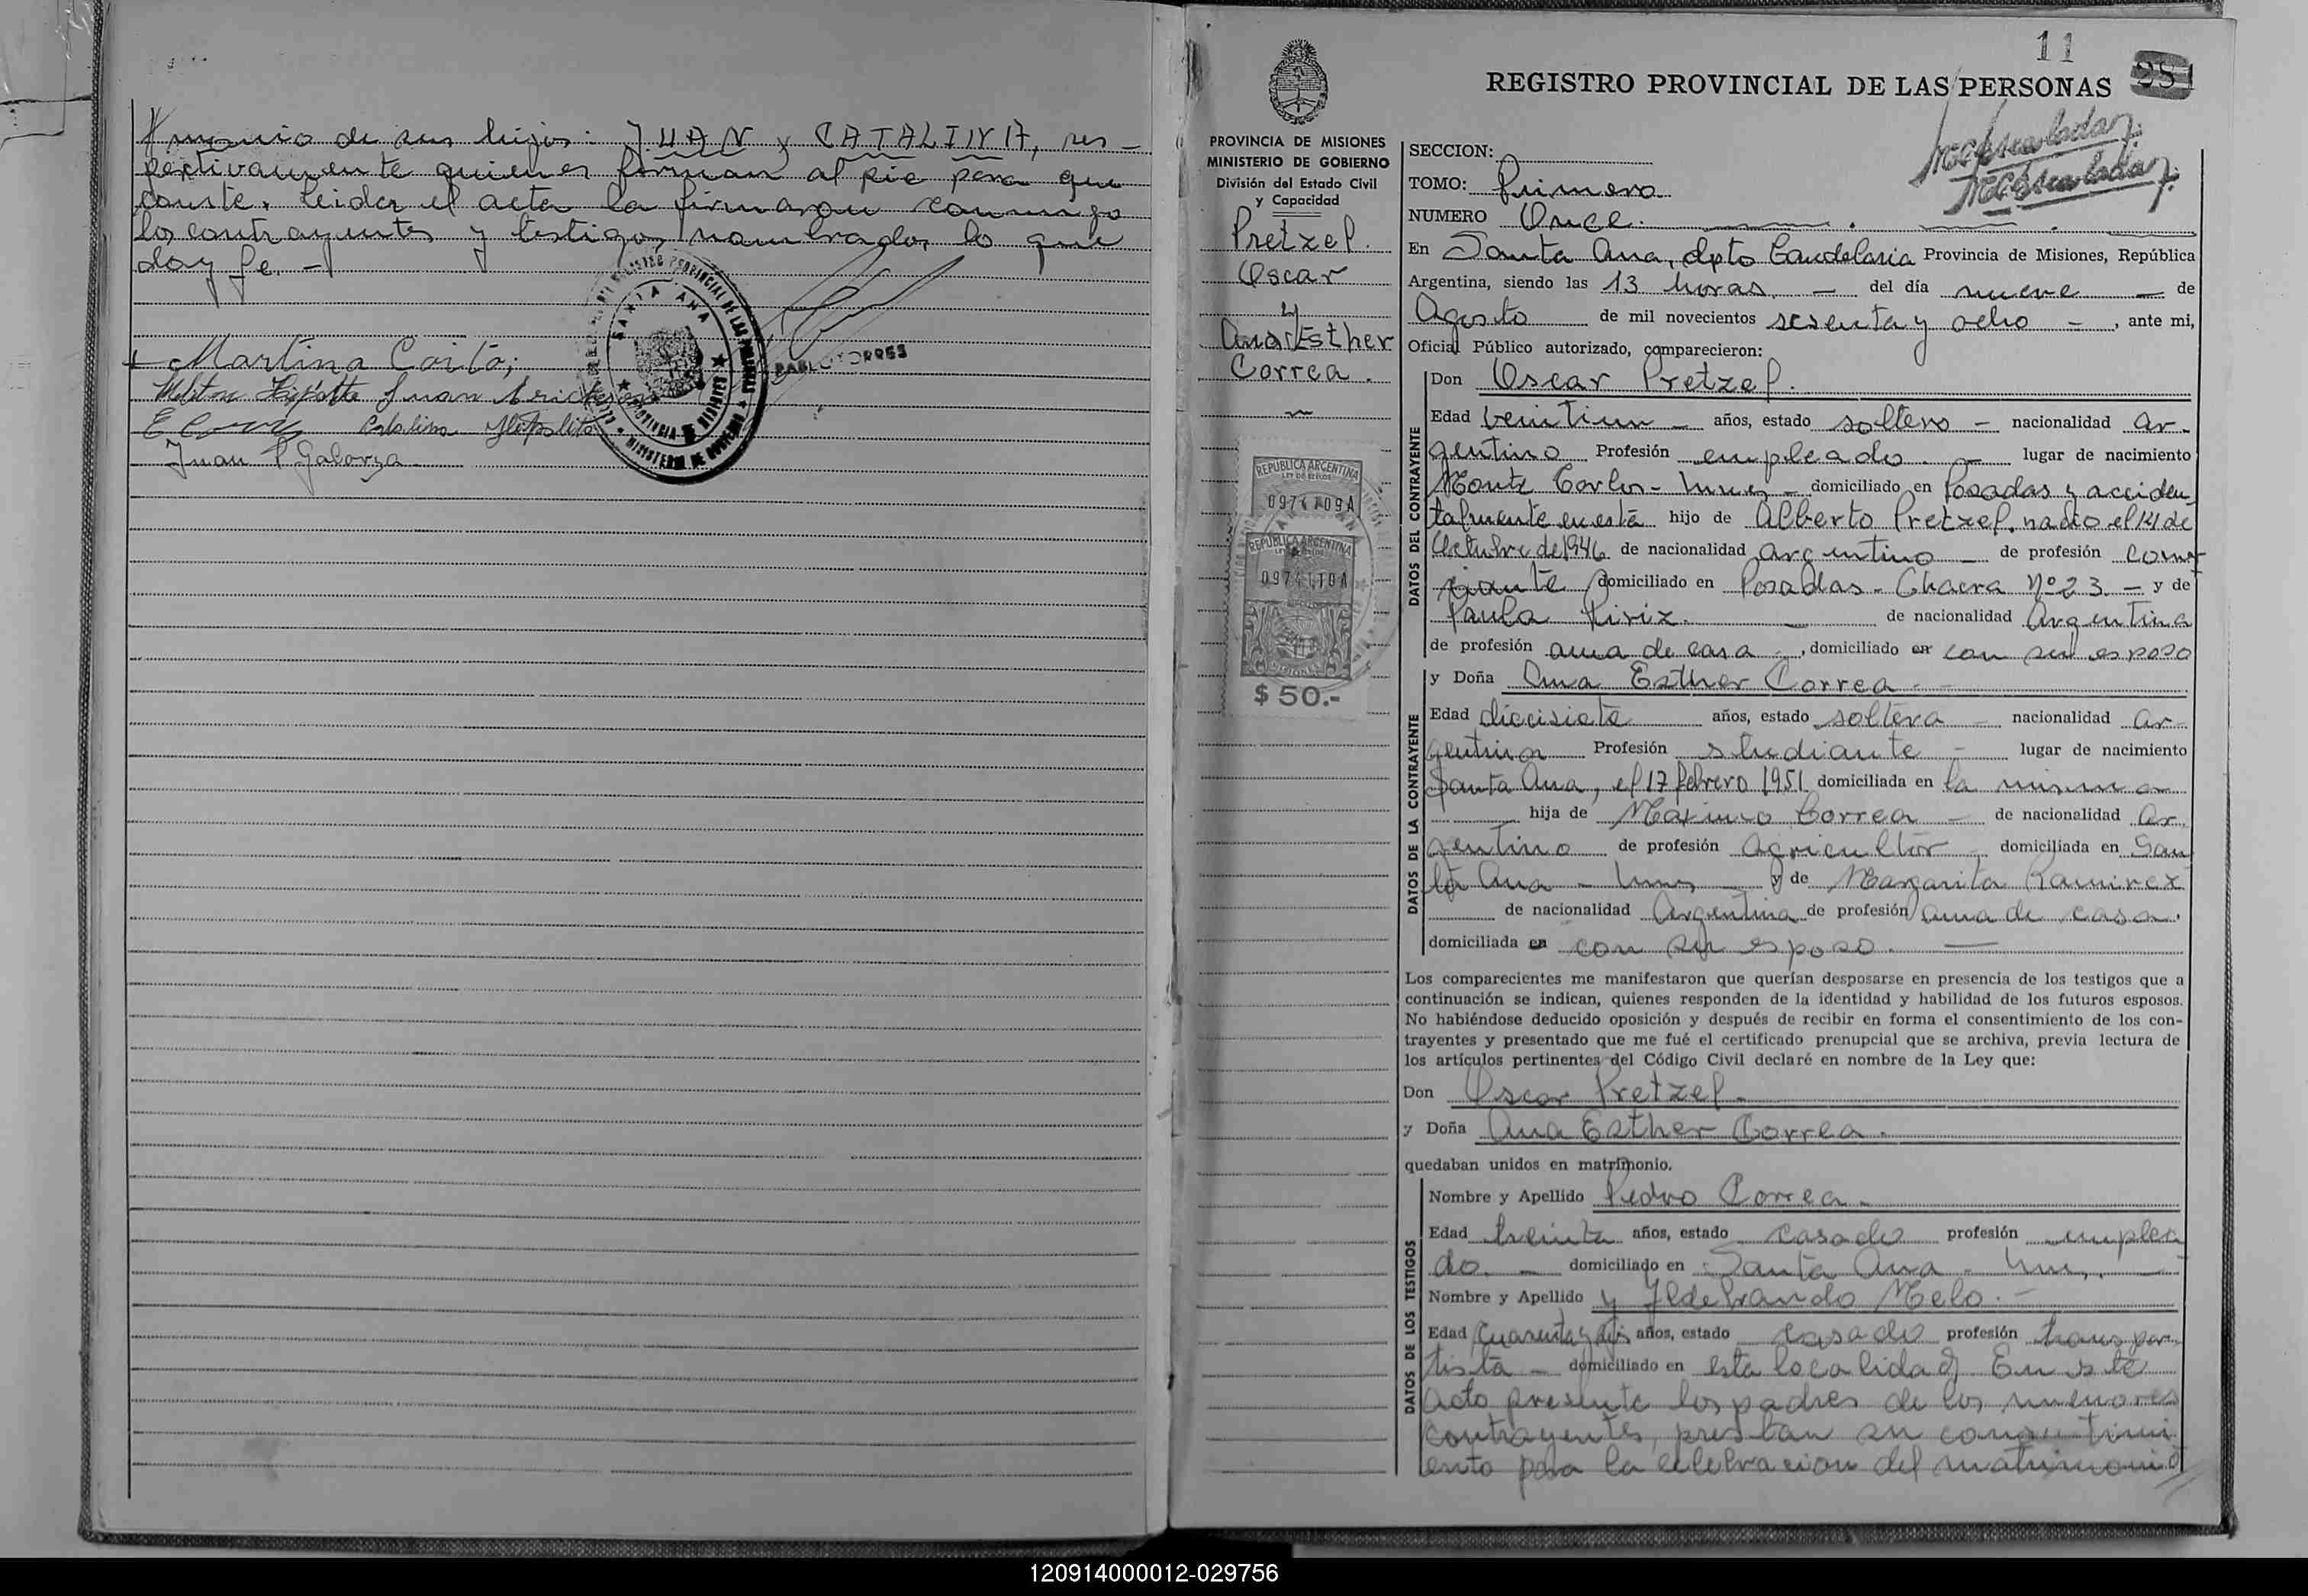 monio de sus hijos: JUAN y CATALINA, res-
pectivamente quienes firman al pie para que
conste. Leida el acta la firmaron conmigo
los contrayentes y testigos nombrados lo que
doy fe. -
Martina
PABLO TORRES
Juan
Catalina Hipolito
Juan P Galarza
SANTA ANA
PROVINCIA DE MISIONES
MINISTERIO DE GOBIERNO
11
REGISTRO PROVINCIAL DE LAS PERSONAS 281
PROVINCIA DE MISIONES
MINISTERIO DE GOBIERNO
División del Estado Civil
y Capacidad
Pretzel
Oscar
y
Ana Esther
Correa.
REPUBLICA ARGENTINA
LEY DE SELLOS
REPUBLICA ARGENTINA
MISIONES
$ 50.-
SECCION:
TOMO: Primero
NUMERO Once.
En Santa Ana, dpto Candelaria Provincia de Misiones, República
Argentina, siendo las 13 horas - del día nueve - de
Agosto de mil novecientos sesenta y ocho - , ante mi,
Oficial Público autorizado, comparecieron:
DATOS DEL CONTRAYENTE
Don Oscar Pretzel.
Edad veintiun - años, estado soltero - nacionalidad ar-
gentino Profesión empleado. - lugar de nacimiento
Monte Carlos - Mnes - domiciliado en Posadas y acciden
talmente en esta hijo de Alberto Pretzel. nacio el 14 de
Octubre de 1946 de nacionalidad argentino - de profesión comer
ciante domiciliado en Posadas - Chacra Nº 23. - y de
Paula Piriz. - de nacionalidad Argentina
de profesión ama de casa - , domiciliado en con su esposo
DATOS DE LA CONTRAYENTE
y Doña Ana Esther Correa -
Edad diecisiete años, estado soltera - nacionalidad ar-
gentina Profesión studiante - lugar de nacimiento
Santa Ana, el 17 febrero 1951 domiciliada en la misma
hija de Maximo Correa - de nacionalidad ar
gentino de profesión agricultor - domiciliada en San
ta Ana - Mnes y de Margarita Ramirez
de nacionalidad Argentina de profesión ama de casa.
domiciliada en con su esposo. -
Los comparecientes me manifestaron que querían desposarse en presencia de los testigos que a
continuación se indican, quienes responden de la identidad y habilidad de los futuros esposos.
No habiéndose deducido oposición y después de recibir en forma el consentimiento de los con-
trayentes y presentado que me fué el certificado prenupcial que se archiva, previa lectura de
los artículos pertinentes del Código Civil declaré en nombre de la Ley que:
Don Oscar Pretzel.
y Doña Ana Esther Correa.
quedaban unidos en matrimonio.
DATOS DE LOS TESTIGOS
Nombre y Apellido Pedro Correa.
Edad treinta años, estado casado profesión emplea
do. - domiciliado en Santa Ana - Mnes. -
Nombre y Apellido y Ildebrando Melo. -
Edad cuarenta y años, estado casado profesión transpor
tista - domiciliado en esta localidad En ste
acto presente los padres de los menores
contrayentes, prestan su consentimi
ento para la celebracion del matrimonio
120914000012-029756